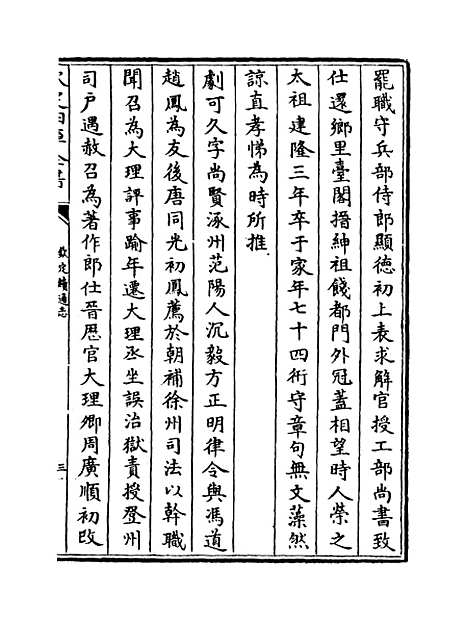 罷職守兵部侍郎顯德初上表求解官授工部尚書致
仕還鄉里臺閣搢紳祖餞都門外冠蓋相望時人榮之
太祖建隆三年卒于家年七十四術守章句無文藻然
諒直孝悌為時所推
劇可久字尚賢涿州范陽人沉毅方正明律令與馮道
趙鳳為友後唐同光初鳳薦於朝補徐州司法以幹職
聞召為大理評事踰年遷大理丞坐誤治獄責授登州
司戶遇赦召為著作郎仕晉歴官大理卿周廣順初改
欽定四庫全書
欽定續通志
三